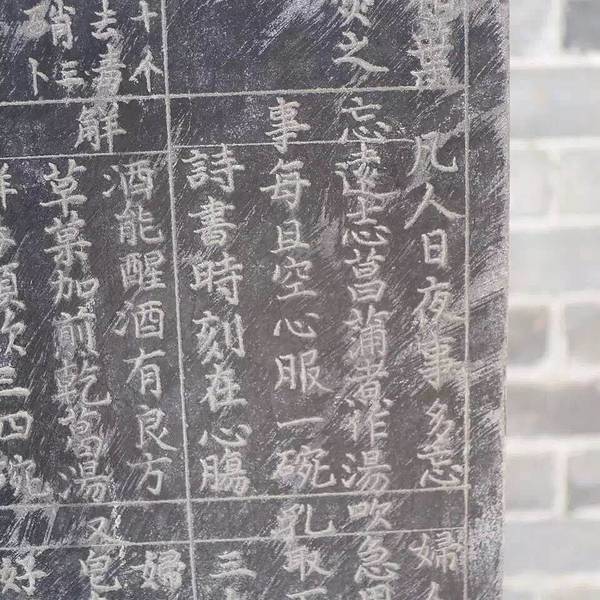 凡人日夜事多忘
忘遠志菖蒲煮作湯
事每且空心服一碗
詩書時刻在心腸
酒能醒酒有良方
解草菓加煎乾葛湯
須飲三四碗
之
十个
去毒
三
卜
婦
吹急
乳取
三
婦
又皂
好